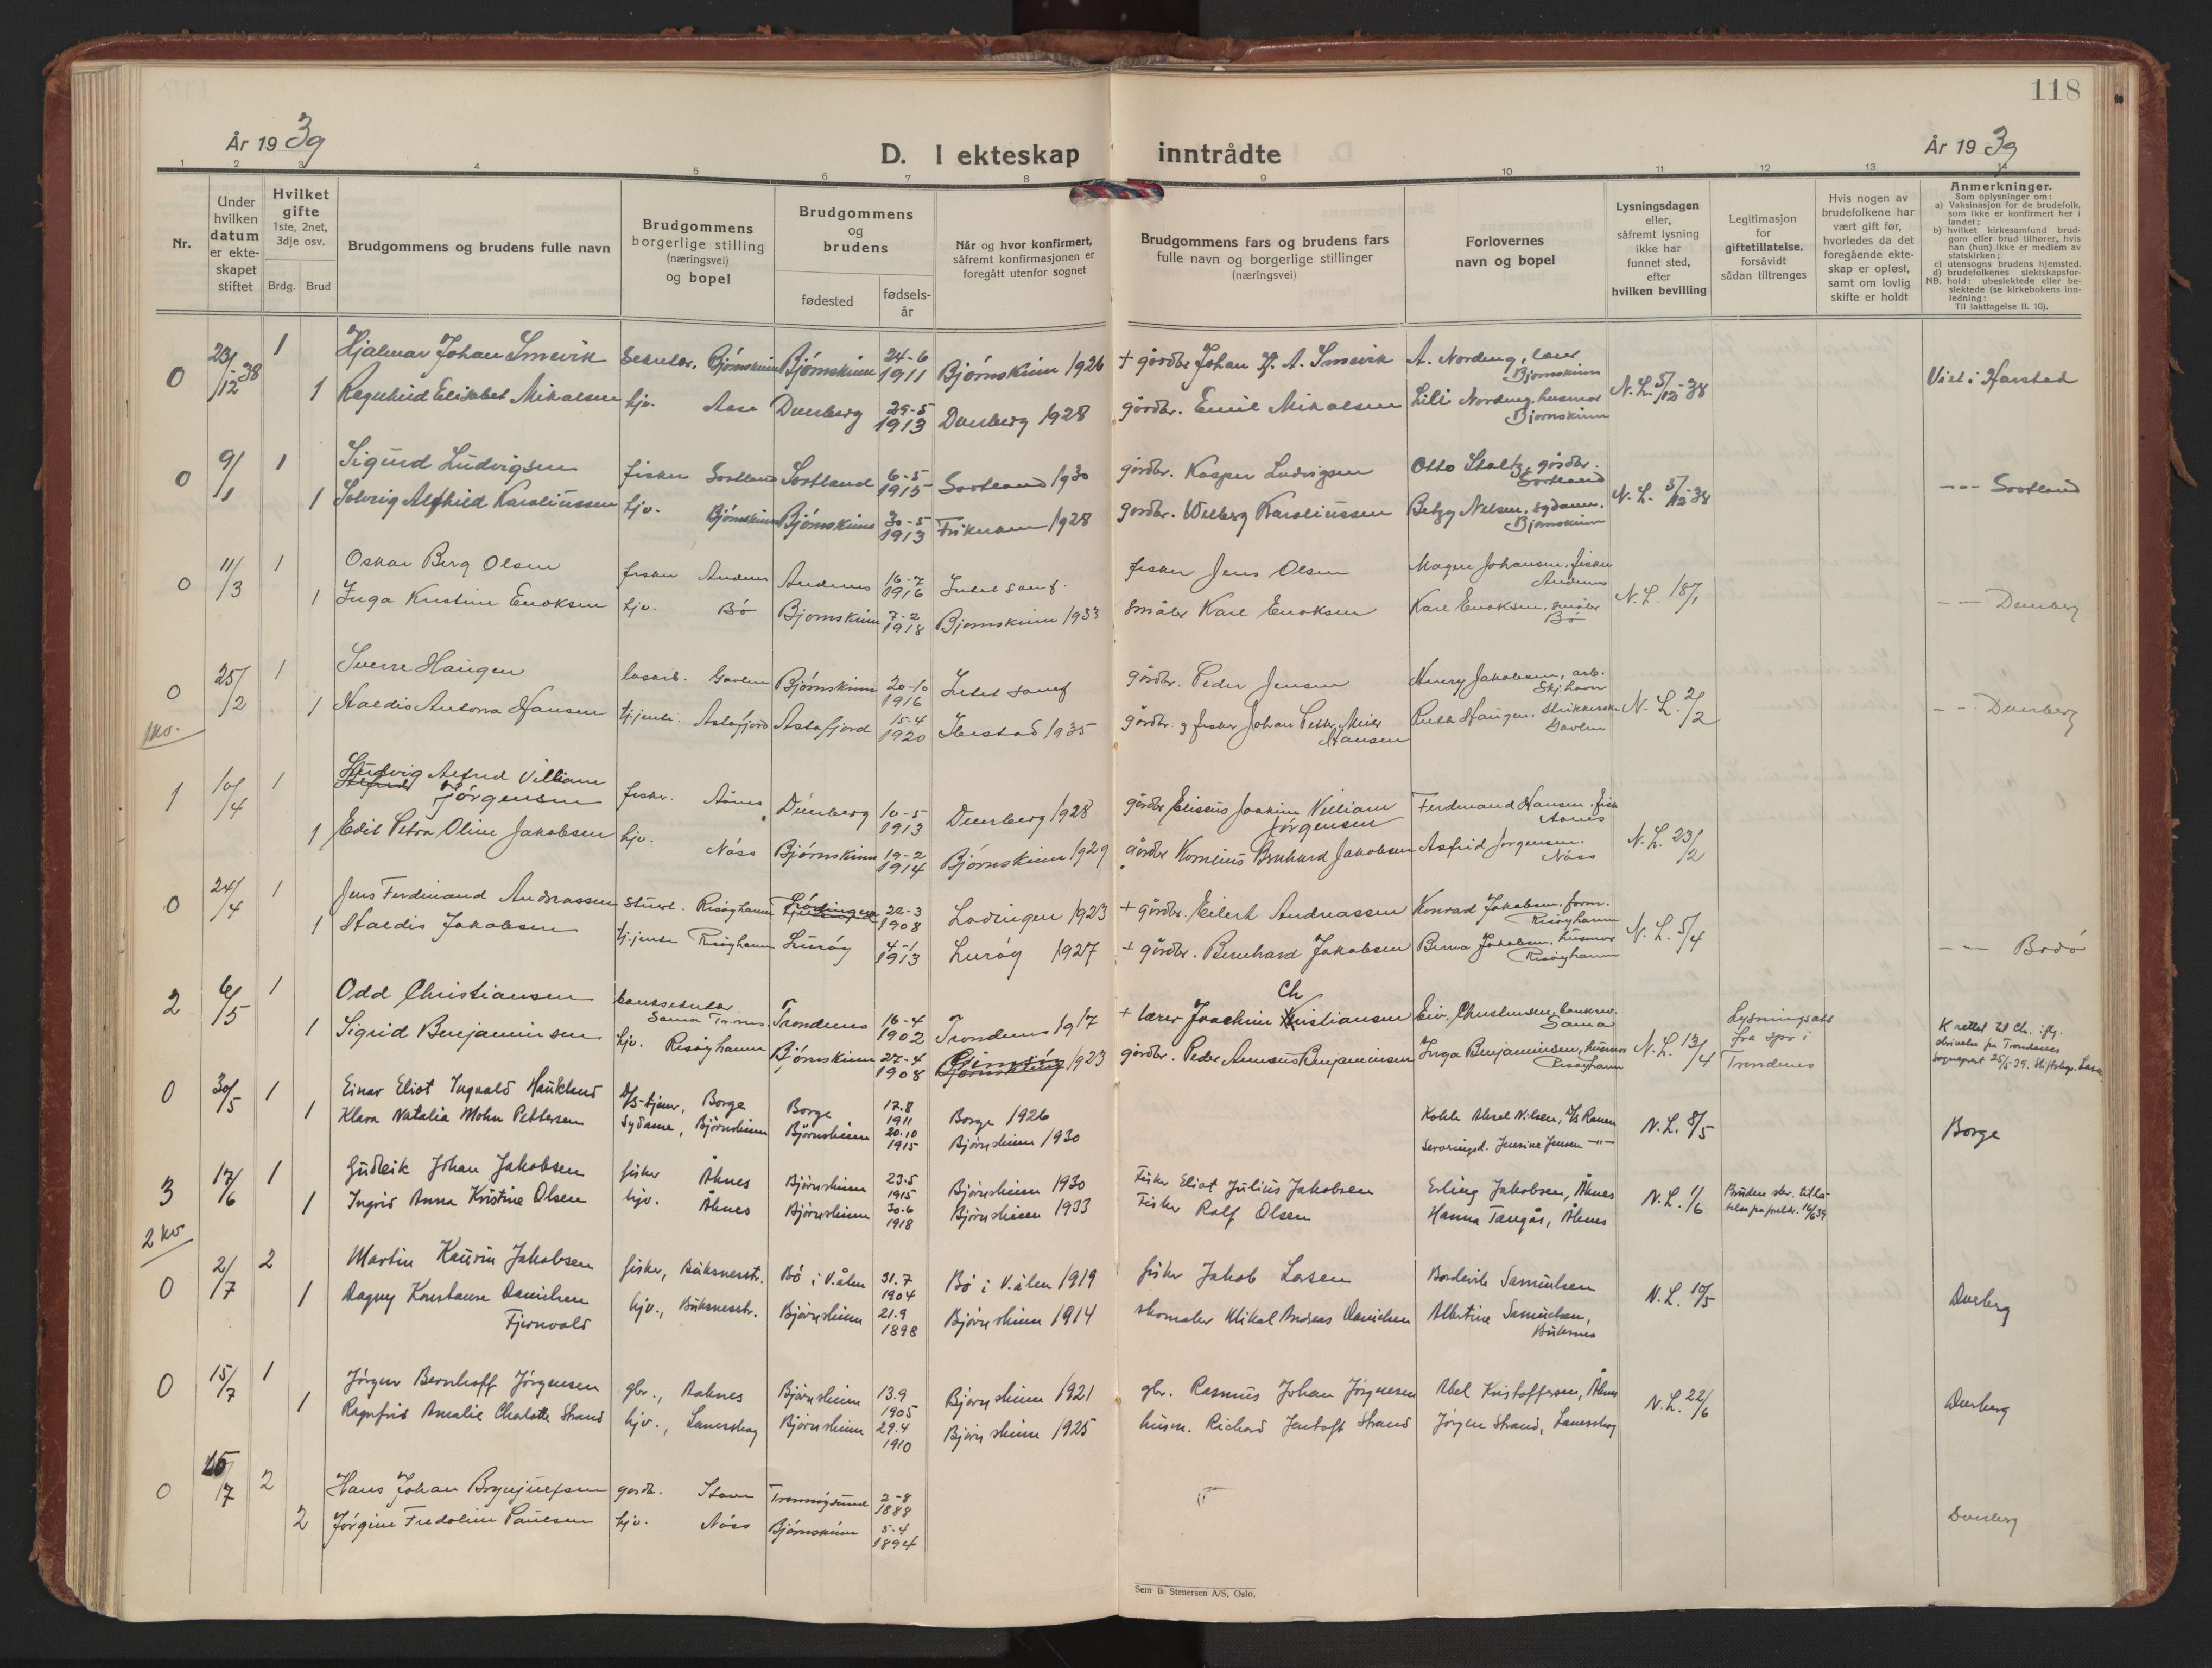 118
År 1939
D. I ekteskap inntrådte
År 1939
1 2 3 4 5 6 7 8 9 10 11 12 13 14
Nr.
Under hvilken datum er ekteskapet stiftet
Hvilket gifte 1ste, 2net, 3dje osv.
Brdg. Brud
Brudgommens og brudens fulle navn
Brudgommens borgerlige stilling (næringsvei) og bopel
Brudgommens og brudens
fødested
fødsels-år
Når og hvor konfirmert, såfremt konfirmasjonen er foregått utenfor sognet
Brudgommens fars og brudens fars fulle navn og borgerlige stillinger (næringsvei)
Forlovernes navn og bopel
Lysningsdagen eller, såfremt lysning ikke har funnet sted, efter hvilken bevilling
Legitimasjon for giftetillatelse. forsåvidt sådan tiltrenges
Hvis nogen av brudefolkene har vært gift før, hvorledes da det foregående ekteskap er opløst, samt om lovlig skifte er holdt
Anmerkninger.
Som oplysninger om:
a) Vaksinasjon for de brudefolk. som ikke er konfirmert her i landet;
b) hvilket kirkesamfund brudgom eller brud tilhører, hvis han (hun) ikke er medlem av statskirken;
c) utensogns brudens hjemsted.
d) brudefolkenes slektskapsforhold: ubeslektede eller beslektede (se kirkebokens innledning:
NB. Til iakttagelse II. 10).
0 23/12-38 1 Hjalmar Johan Smevik Sekretær. Bjørnskinn Bjørnskinn 24-6 1911 Bjørnskinn 1926 + gårdbr Johan H. A. Smevik A. Nordeng, lærer Bjørnskinn
1 Ragnhild Elisabet Mikalsen hjv. Aase Dverberg 29-5 1913 Dverberg 1928 gårdbr. Emil Mikalsen Lili Nordeng, husmor Bjørnskinn N. L. 5/12-38 Viet i Harstad
0 9/1 1 Sigurd Ludvigsen fisker Sortland Sortland 6-5 1915 Sortland 1930 gårdbr. Kasper Ludvigsen Otto Stoltz, gårdbr. Sortland
1 Solveig Alfhild Karoliussen hjv. Bjørnskinn Bjørnskinn 30-5 1913 1928 gårdbr. Welberg Karoliussen Betzy Nilsen, sydame. Bjørnskinn N. L. 5/12-38 --- Sortland
0 11/3 1 Oskar Berg Olsen fisker Andenes Andenes 16-7 1916 Intet samf. fisker Jens Olsen Magne Johansen, fisker Andenes
1 Inga Kristine Enoksen hjv. Bø Bjørnskinn 7-2 1918 Bjørnskinn 1933 småbr Karl Enoksen Karl Enoksen, småbr Bø N. L. 18/1 -- Dverberg
0 25/2 1 Sverre Haugen løsarb. Gavlen Bjørnskinn 20-10 1916 Intet samf gårdbr. Peder Jensen Henry Jakobsen, arb.
1 Haldis Antona Hansen tj.jente. Astafjord Astafjord 15-4 1920 Ibestad 1935 gårdbr. og fisker Johan Petter Meier Hansen Ruth Haugen, Gavlen N. L. 2/2 -- Dverberg
1 kv.
1 10/4 1 Ludvig Alfred Villiam Jørgensen fisker. Åknes Dverberg 10-5 1913 Dverberg 1928 gårdbr Eliseus Joakim Villiam Jørgensen Ferdinand Hansen. fisk Aanes
1 Edit Petra Oline Jakobsen hjv. Nøss Bjørnskinn 19-2 1914 Bjørnskinn 1929 gårdbr Kornelius Bernhard Jakobsen Asfrid Jørgensen. Nøss N. L. 23/2
0 24/4 1 Jens Ferdinand Andreassen stuert. Risøyhamn Lødingen 22-3 1908 Lødingen 1923 + gårdbr. Eilert Andreassen Konrad Jakobsen. form. Risøyhamn
1 Haldis Jakobsen tj.jente Risøyhamn Lurøy 4-1 1913 Lurøy 1927 + gårdbr. Bernhard Jakobsen Berna Jakobsen, husmor Risøyhamn N. L. 5/4 -- Bodø
2 6/5 1 Odd Christiansen banksekretær Sama Tr.nes. Trondenes 16-4 1902 Trondenes 1917 + lærer Joachim Christiansen Eiv. Christensen, Sama
1 Sigrid Benjaminsen hjv. Risøyhamn Bjørnskinn 27-4 1908 1923 gårdbr. Peder Benjaminsen Inga Benjaminsen, husmor Risøyhamn N. L. 13/4 Lysningsatt fra spr i Trondenes K rettet til Ch. ifg. skrivelse fra Trondenes sogneprest 25/5-39.
0 30/5 1 Einar Eliot Ingvald Haukland D/S-tjener, Borge Borge 17.8 1911 Borge 1926 Kokk Aksel Nilsen,
1 Klara Natalia Mohn Pettersen Sydame, Bjørnskinn Bjørnskinn 20.10 1915 Bjørnskinn 1930 Serveringsd. Jensine Jensen -"- N. L. 8/5 Borge
3 17/6 1 Gudleik Johan Jakobsen fisker Åknes Bjørnskinn 23.5 1915 Bjørnskinn 1930 Fisker Eliot Julius Jakobsen Erling Jakobsen, Åknes
1 Ingrid Anna Kristine Olsen hjv. Åknes Bjørnskinn 30.6 1918 Bjørnskinn 1933 Fisker Rolf Olsen Hanna Tangås, Åknes N. L. 1/6
2 kv
0 2/7 2 Martin Kaurin Jakobsen fisker, Buksnesstr. Bø i V.ålen 31.7 1904 Bø i V.ålen 1919 fisker Jakob Larsen Bordevik Samuelsen
1 Dagny Konstanse Danielsen Fjernvald hjv., Buksnesstr. Bjørnskinn 21.9 1898 Bjørnskinn 1914 skomaker Mikal Andreas Danielsen Albertine Samuelsen, Buksnes N. L. 10/5 Dverberg
0 15/7 1 Jørgen Bernhoff Jørgensen gbr., Aaknes Bjørnskinn 13.9 1905 Bjørnskinn 1921 gbr. Rasmus Johan Jørgensen Abel Kristoffersen, Åknes
1 Ragnfrid Amalie Charlotte Strand hjv., Lanesskog Bjørnskinn 29.4 1910 Bjørnskinn 1925 husm. Richard Jentoft Strand Jørgen Strand, Lanesskog N. L. 22/6 Dverberg
0 16/7 2 Hans Johan Brynjulfsen gårdbr. Stave Tromsøysund 2-8 1888
2 Jørgine Fredoline Paulsen hjv. Nøss Bjørnskinn 5-4 1894 Dverberg
Sem & Stenersen A/S, Oslo.